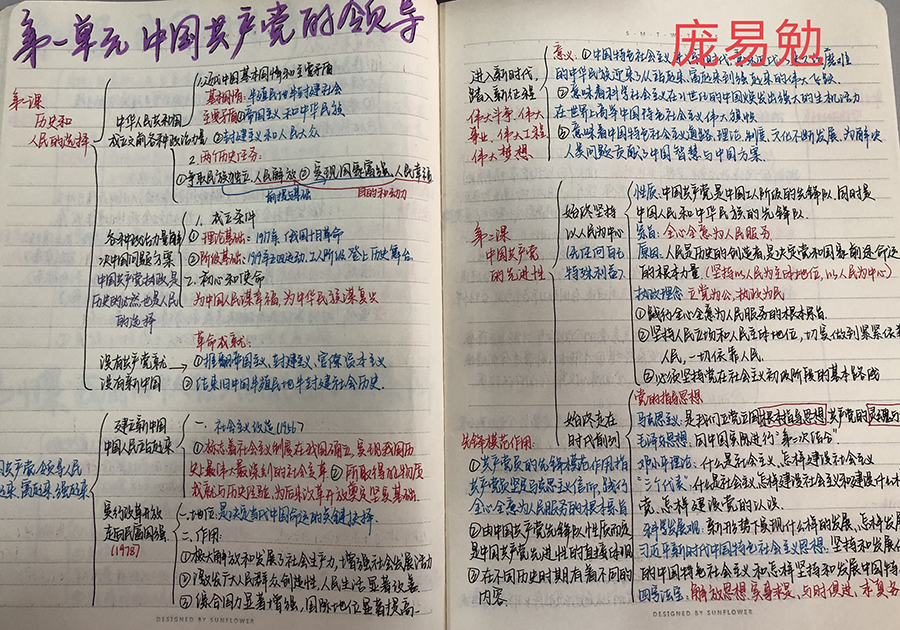 第一单元 中国共产党的领导
第一课
历史和
人民的选择
中华人民共和国
成立前各种政治力量
1.近代中国基本国情和主要矛盾
基本国情：半殖民地半封建社会
主要矛盾：①帝国主义和中华民族
②封建主义和人民大众
2.两个历史任务：
①争取民族独立、人民解放 ②实现国家富强、人民幸福
前提基础
目的和动力
各种政治力量解
决中国问题方案
中国共产党执政是
历史的必然也是人民
的选择
1.成立条件
①理论基础：1917年俄国十月革命
②阶级基础：1919年五四运动，工人阶级登上历史舞台
2.初心和使命
为中国人民谋幸福，为中华民族谋复兴
没有共产党就
没有新中国
革命成就：
①推翻帝国主义、封建主义、官僚资本主义
②结束旧中国半殖民地半封建社会历史.
国共产党领导人民
起来、富起来、强起来
建立新中国
中国人民站起来
一、社会主义改造(1956)
①标志着社会主义制度在我国确立，实现我国历
史上最伟大最深刻的社会变革 ②所取得的物质
成就与历史经验，为后来改革开放奠定坚实基础.
实行改革开放
走向民富国强
(1978)
一.地位：是决定当代中国命运的关键抉择.
二、作用：
①极大解放和发展了社会生产力，增强社会发展活力
②激发广大人民群众创造性，人民生活显著改善
③综合国力显著增强，国际地位显著提高.
DESIGNED BY SUNFLOWER
S M T W
庞易勉
进入新时代，
踏入新征程
伟大斗争、伟大
事业、伟大工程
伟大梦想
意义：①中国特色社会主义
的中华民族迎来了从站起来、富起来到强起来的伟大飞跃
②意味着科学社会主义在21世纪的中国焕发出强大的生机活力
在世界上高举中国特色社会主义伟大旗帜
③意味着中国特色社会主义道路、理论、制度、文化不断发展，为解决
人类问题贡献了中国智慧与中国方案.
第二课
中国共产党
的先进性
始终坚持
以人民为中心
特殊利益？
性质：中国共产党是中国工人阶级的先锋队，同时是
中国人民和中华民族的先锋队.
宗旨：全心全意为人民服务
原因：人民是历史的创造者，是决定党和国家前途命运
的根本力量（坚持以人民为主体地位，以人民为中心）
执政理念：立党为公，执政为民
①践行全心全意为人民服务的根本宗旨
②坚持人民立场和人民主体地位，切实做到紧紧依靠
人民，一切依靠人民.
③必须坚持党在社会主义初级阶段的基本路线
始终走在
时代前列
党的指导思想
马克思主义：是我们立党立国根本指导思想，共产党的
毛泽东思想：同中国实际进行"第一次结合"
邓小平理论：什么是社会主义，怎样建设社会主义
"三个代表"：什么是社会主义怎样建设社会主义和建设什么样
党、怎样建设党的认识
科学发展观：新形势下实现什么样的发展，怎样发展
习近平新时代中国特色社会主义思想：坚持和发展
的中国特色社会主义和怎样坚持和发展中国特
四字法宝：解放思想、实事求是、与时俱进、求真务
先锋模范作用：
①共产党员的先锋模范作用指
共产党员坚定马克思主义信仰，践行
全心全意为人民服务的根本宗旨
②由中国共产党先锋队性质而定
是中国共产党先进性的直接体现
③在不同历史时期有着不同的
内容
DESIGNED BY SUNFLOWER